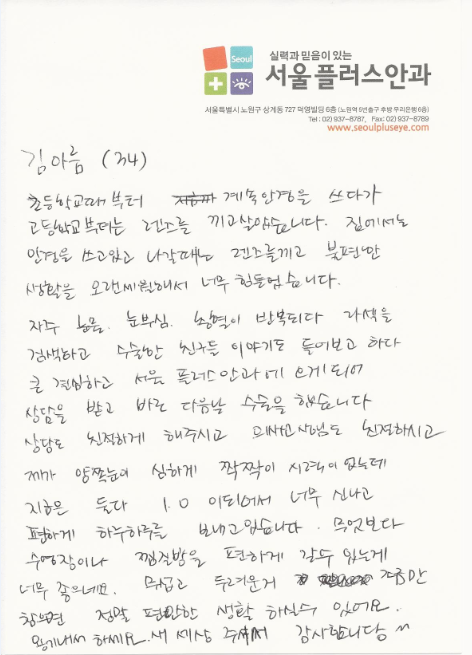 Seoul
실력과 믿음이 있는
서울플러스안과
서울특별시 노원구 상계동 727 덕영빌딩 6층 (노원역 9번출구 후방 우리은행 6층)
Tel : 02) 937-8787, Fax : 02) 937-8789
www.seoulpluseye.com
김아름 (34)
초등학교때부터 계속안경을 쓰다가
고등학교부터는 렌즈를 끼고살았습니다. 집에서는
안경을 쓰고있고 나갈때는 렌즈를끼고 불편한
생활을 오랜세월해서 너무 힘들었습니다.
자주 눈부심. 충혈이 반복되다 라섹을
검색하고 수술한 친구들 이야기도 들어보고 하다
큰 결심하고 서울 플러스안과에 오게되어
상담을 받고 바로 다음날 수술을 했습니다
상담도 친절하게 해주시고 의사선생님도 친절하시고
제가 양쪽눈이 심하게 짝짝이 시력이 었는데
지금은 둘다 1.0 이되어서 너무 신나고
편하게 하루하루를 보내고있습니다. 무엇보다
수영장이나 찜질방을 편하게 갈수 있는게
너무 좋으네요. 무섭고 두려운게 조금만
참으면 정말 편안한 생활 하실수 있어요.
용기내서 하세요. 새 세상 주셔서 감사합니다 ^^